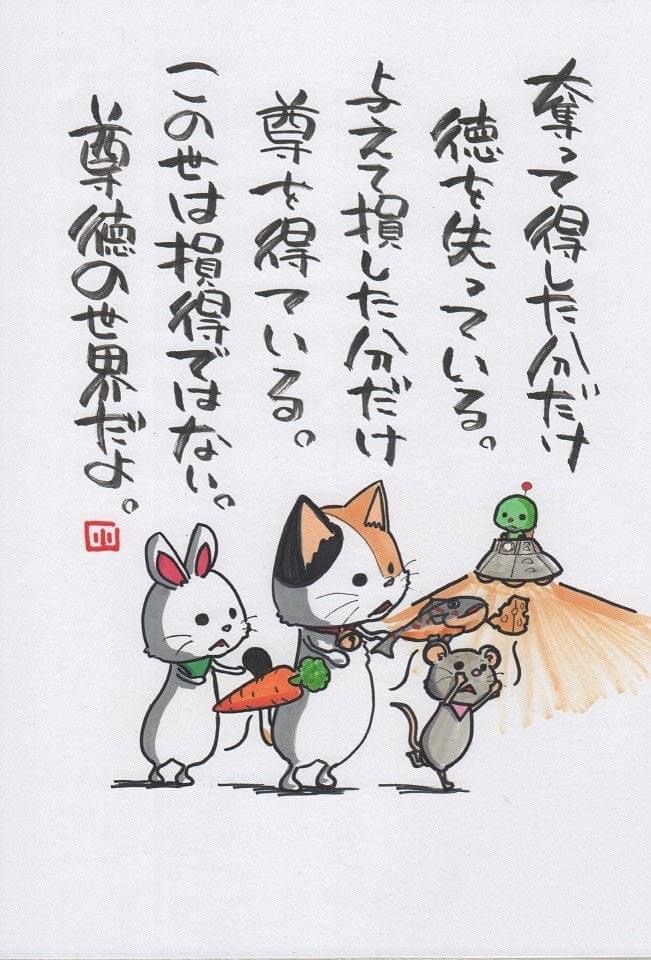 奪って得した分だけ
徳を失っている。
与えて損した分だけ
尊を得ている。
この世は損得ではない。
尊徳の世界だよ。